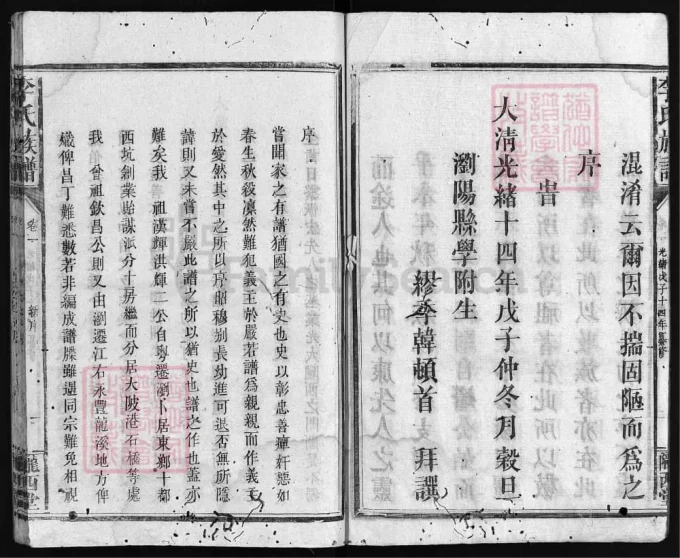 混淆云爾因不揣固陋而爲之
序
旹
大清光緒十四年戊子仲冬月穀旦
瀏陽縣學附生
繆李韓頓首 拜譔
李氏族譜
光緒戊子十四年
隴西堂
序
嘗聞家之有譜猶國之有史也史以彰忠善癉奸慝如
春生秋殺凛然難犯義主於嚴若譜爲親親而作義主
於愛然其中之所以序昭穆別長幼進可退否無所隱
諱則又未嘗不嚴此譜之所以猶史也譜之作也蓋亦
難矣我 祖漢輝洪輝二公自粵遷瀏卜居東鄉十都
西坑創業貽謀派分十房繼而分居大陂港石橋等處
我 曾祖欽昌公則又由瀏遷江右永豐龍溪地方俾
熾俾昌丁難悉數若非編成譜牒雖遇同宗難免相視
李氏族譜
卷一
隴西堂